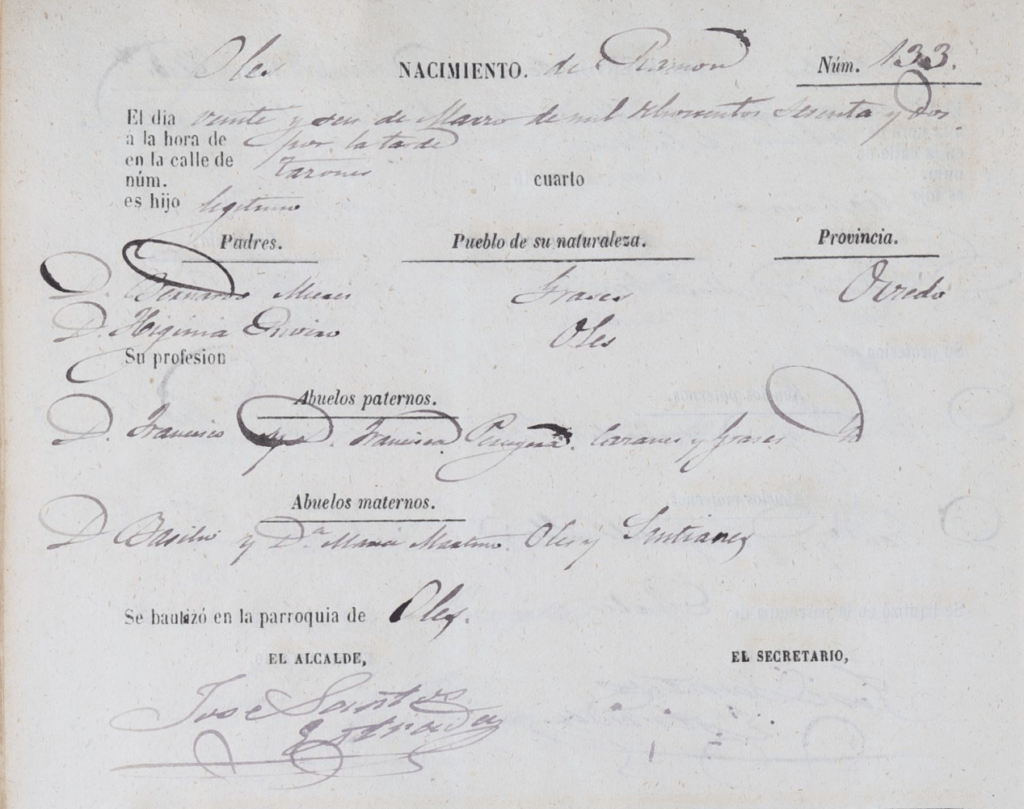 Oles NACIMIENTO. de Ramon Núm. 133.
El dia veinte y seis de Marzo de mil ochocientos sesenta y dos
á la hora de por la tarde
en la calle de Tazones
núm. cuarto
es hijo legitimo
Padres. Pueblo de su naturaleza. Provincia.
D. Bernardo Grases Oviedo
D. Higinia Oles
Su profesion
Abuelos paternos.
D. Francisco y D. Francisca y Grases
Abuelos maternos.
D Basilio y Dª Maria Oles y Santianes
Se bautizó en la parroquia de Oles.
EL ALCALDE, EL SECRETARIO,
Jose Santos